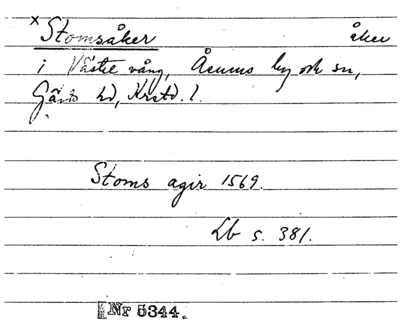 x Stomsåker åker
i Västre vång, Åsums by och sn,
Gärds hd, Krstd. l.
Stoms agir 1569.
Lb s. 381.
Nr 5344.